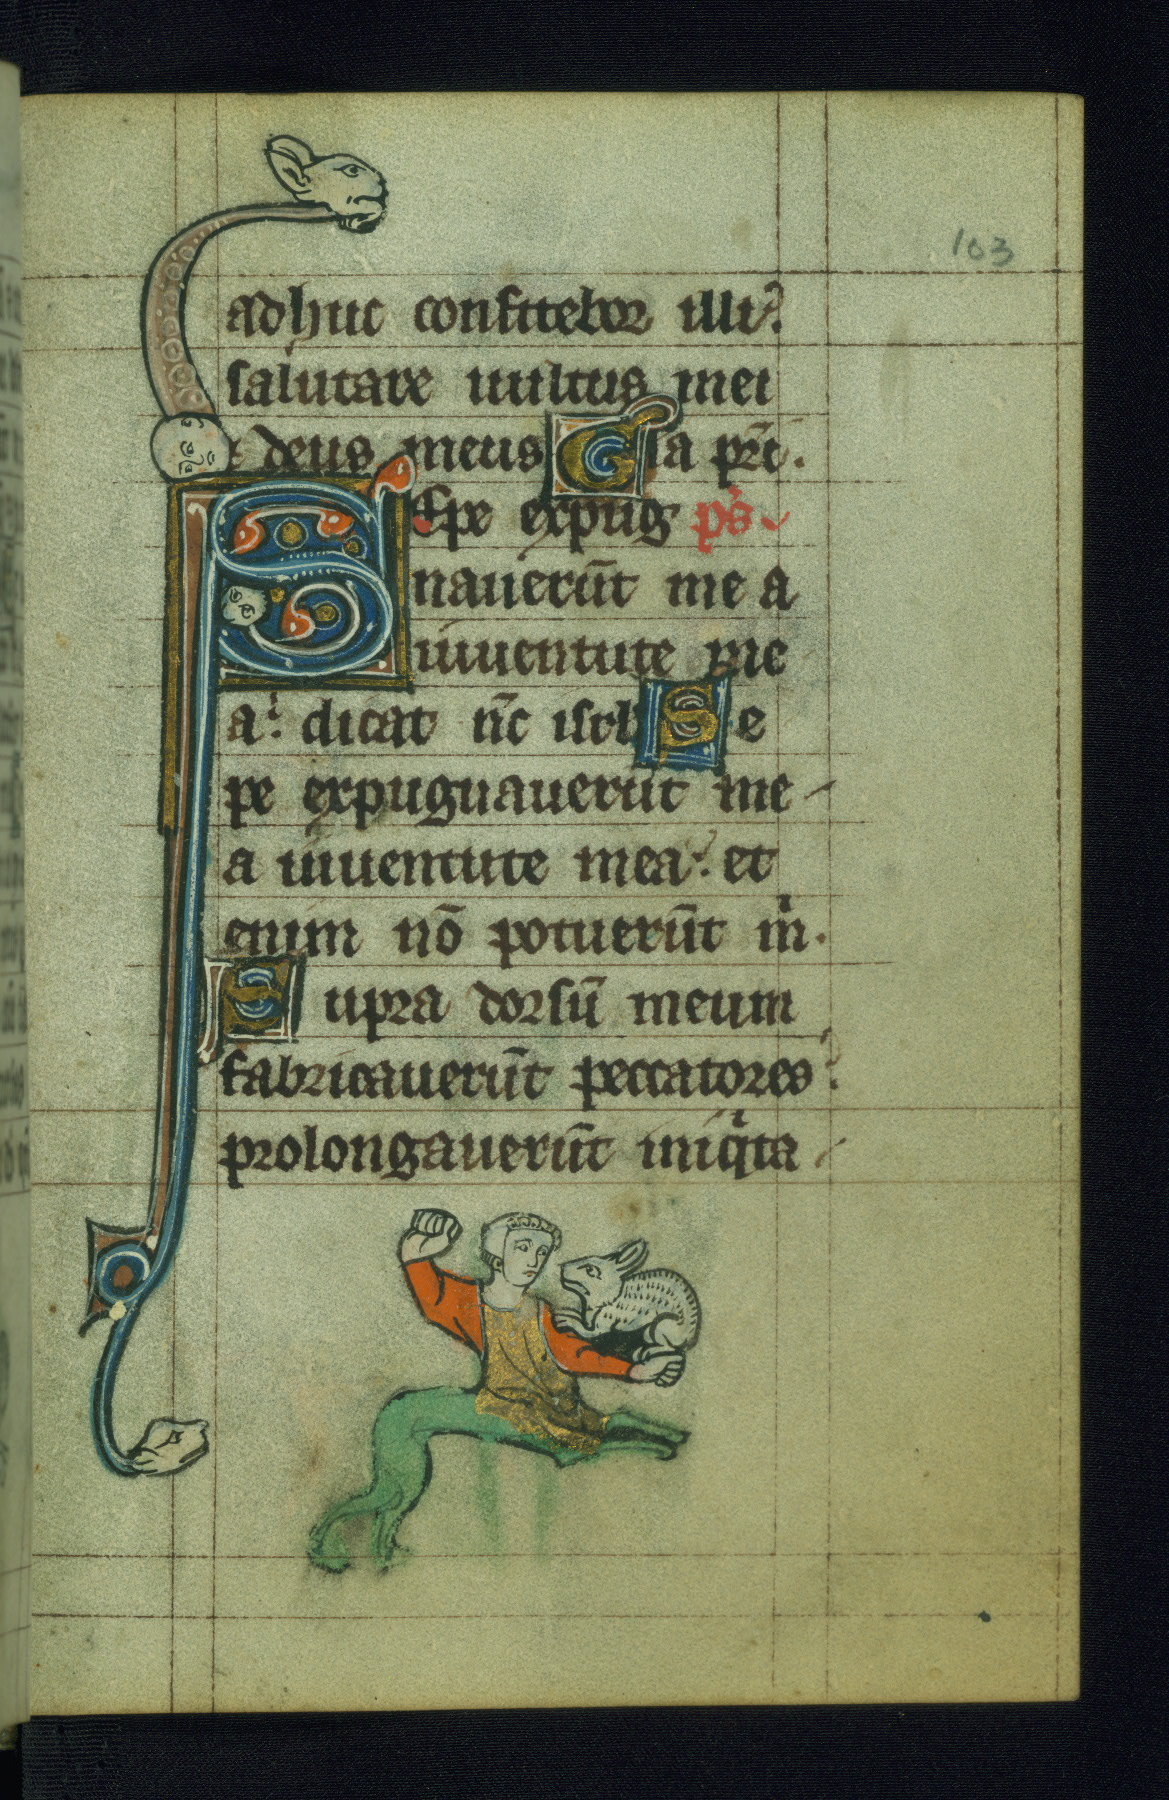 103
adhuc confitebor illi.
salutare uultus mei
& deus meus Gla pr̄i.
Sepe expug ps̄.
nauerūt me a
iuuentute me
a. dicat nc̄ isrl Se
pe expugnauerūt me
a iuuentute mea. et
enim nō potuerūt m̄.
Supra dorsū meum
fabricauerūt peccatores
prolongauerūt iniqta